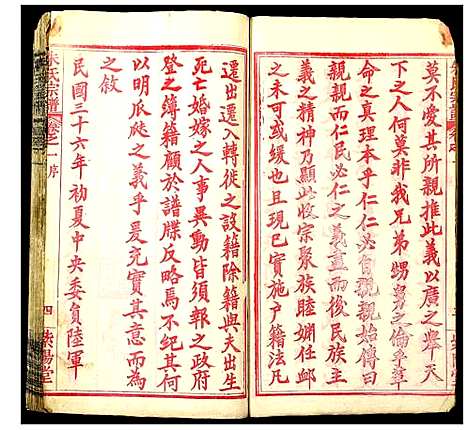 莫不愛其所親推此義以廣之舉天
下之人何莫非我兄弟甥舅之倫乎革
命之真理本乎仁仁必自親親始傳曰
親親而仁民必仁之義盡而後民族主
義之精神乃顯此收宗聚族睦婣任卹
之未可或緩也且現已實施戶籍法凡
遷出遷入轉徙之設籍除籍與夫出生
死亡婚嫁之人事異動皆須報之政府
登之簿籍顧於譜牒反略焉不幾忘其
以明瓜瓞之義乎爰充實其意而為
之敘
民國三十六年初夏中央委員陸軍
朱氏宗譜
卷之一
序
四
紫陽堂